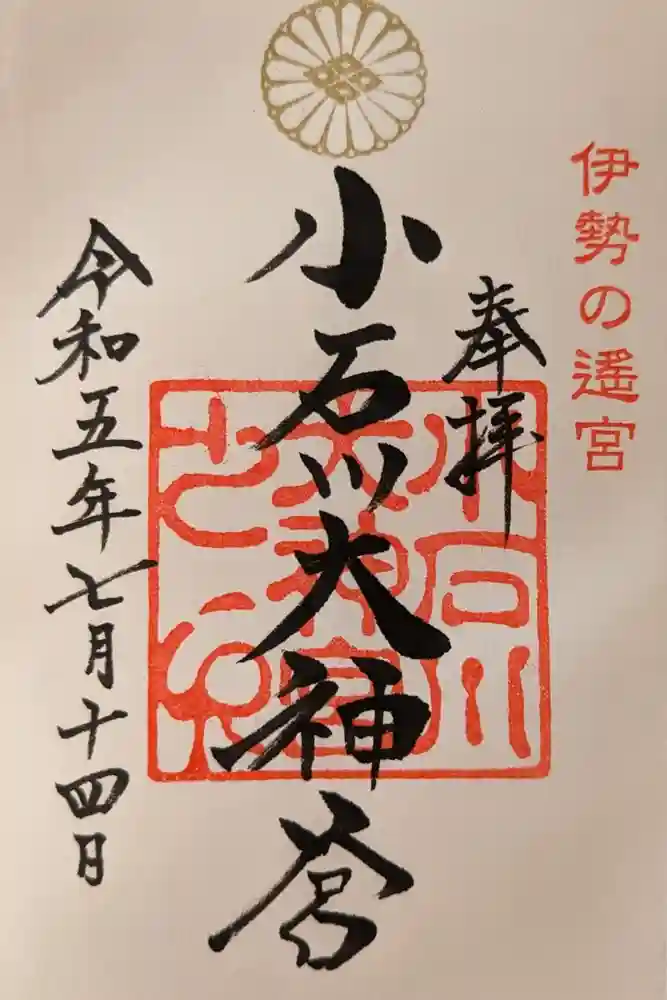 伊勢の遙宮
奉拝
小石川大神宮
令和五年七月十四日
小石川
大神宮
之印